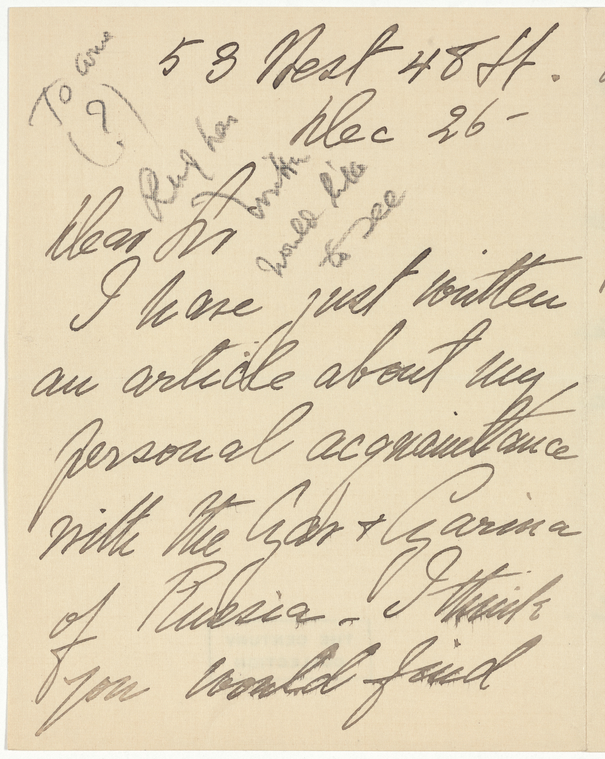 53 West 48 St.
Dec 26-
To
(?)
has
would like
to see
Dear Sir
I have just written
an article about my
personal acquaintance
with the Czar + Czarina
of Russia - I think
you would find